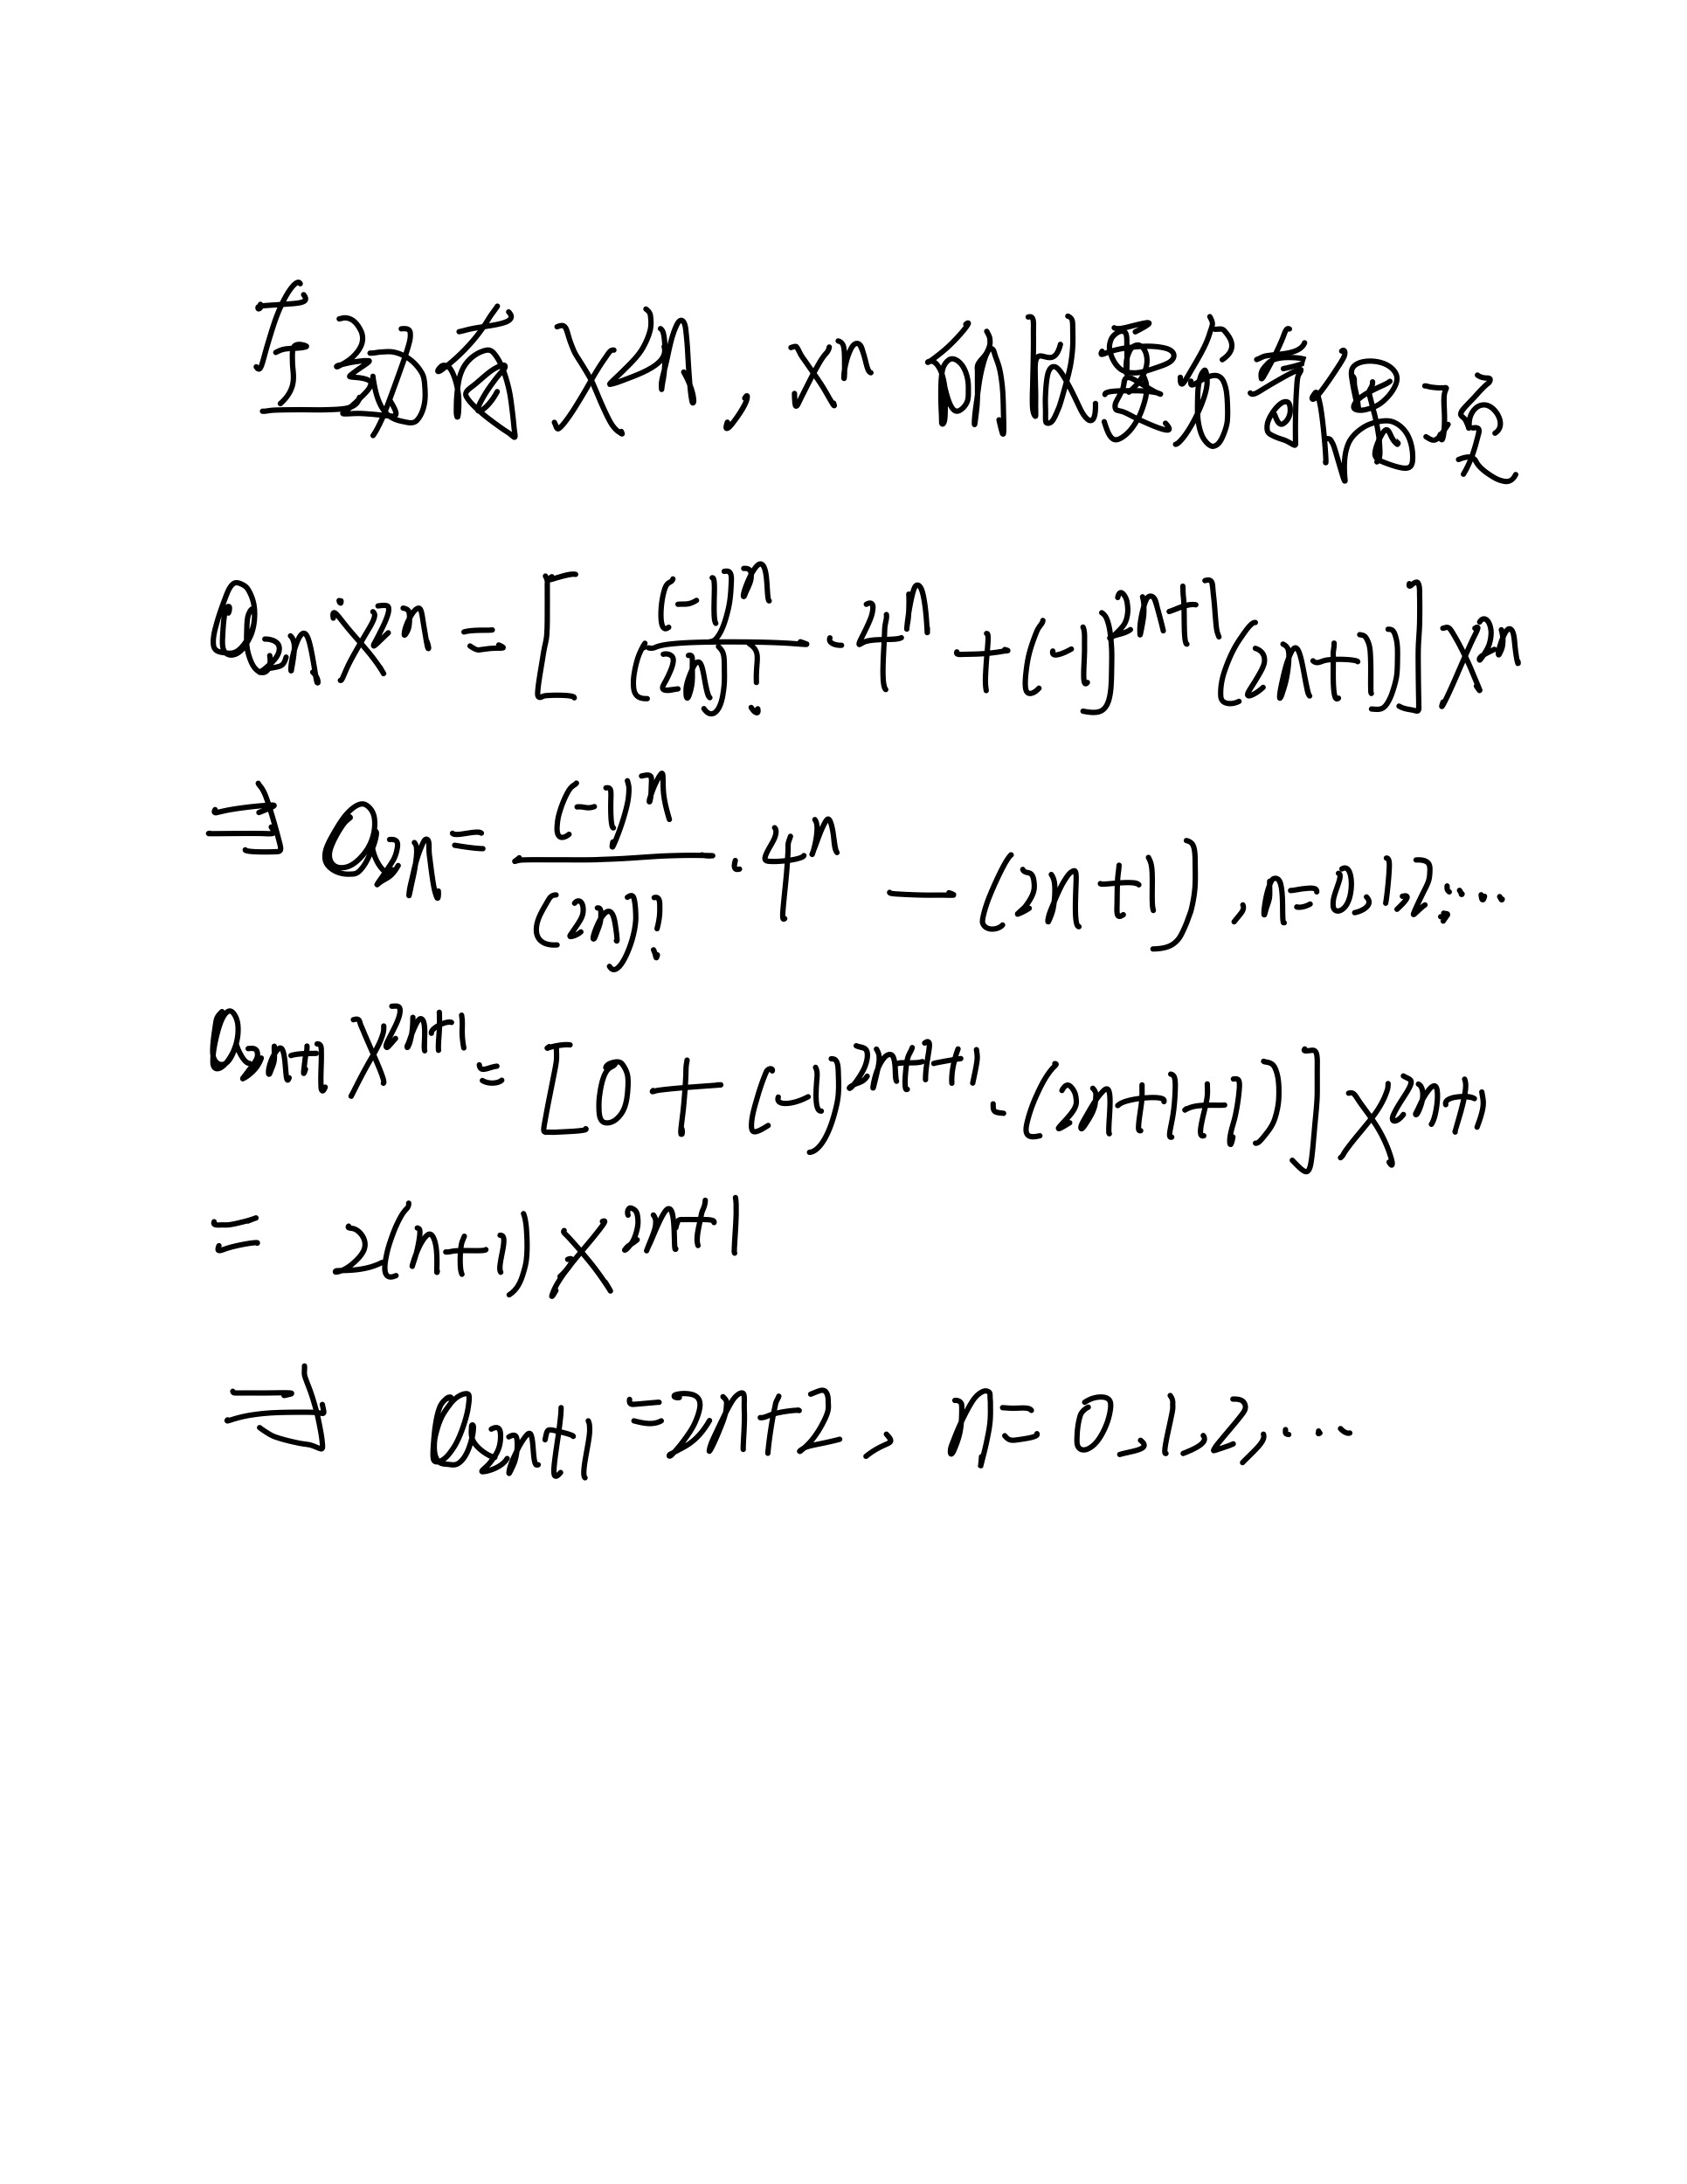 主动看 x²ⁿ, xⁿ 所以要分奇偶项
a₂ₙx²ⁿ = [ (-1)ⁿ/(2n)! · 4ⁿ + (-1)²ⁿ⁺¹(2n+1) ] x²ⁿ
⇒ a₂ₙ = (-1)ⁿ/(2n)! · 4ⁿ - (2n+1), n=0,1,2,...
a₂ₙ₊₁ x²ⁿ⁺¹ = [0 + (-1)²ⁿ⁺¹⁺¹ · (2n+1+1)] x²ⁿ⁺¹
= 2(n+1) x²ⁿ⁺¹
⇒ a₂ₙ₊₁ = 2n+2, n=0,1,2,...